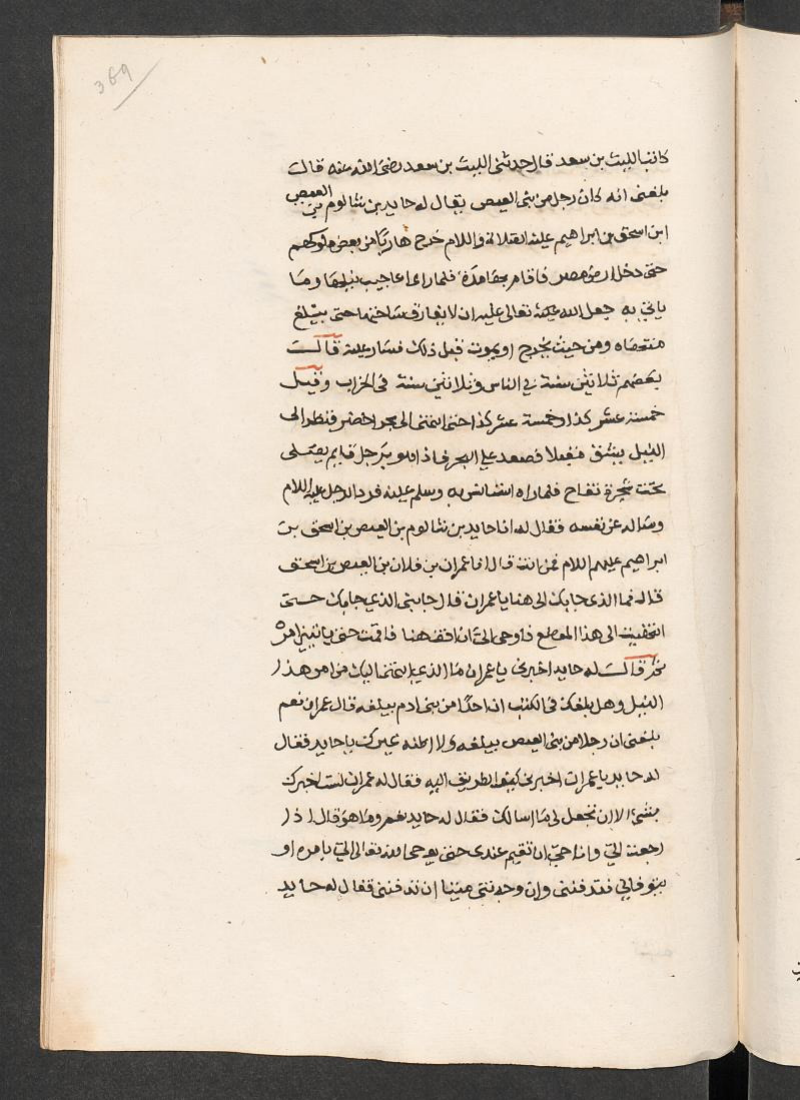 369
كاتب الليث بن سعد قال حدثنى الليث بن سعد رضى الله عنه قالت
بلغنى انه كان رجل من بنى العيص يقال له حايد بن شالوم بن العيص
ابن اسحق بن ابراهيم عليه الصلاة والسلام خرج هاربا من بعض ملوكهم
حتى دخل ارض مصر فاقام بها مدة فلما راى اعاجيب نيلها وما
ياتى به جعل الله عليه تعالى عليه ان لا يفارق ساحتها حتى يبلغ
منتهاه ومن حيث يخرج او يموت قبل ذلك فسار عليه قالت
بعضهم ثلاثين سنة فى الناس وثلاثين سنة فى الخراب وقيل
خمسة عشر كذا وخمسة عشر كذا حتى انتهى الى بحر اخضر فنظر الى
النيل ينشق مقبلا فصعد على البحر فاذا هو برجل قايم يصلى
تحت شجرة تفاح فلما راه استانس به وسلم عليه فرد الرجل عليه السلام
وساله عن نفسه فقال له انا حايد بن شالوم بن العيص بن اسحق بن
ابراهيم عليهم السلام فمن انت قال انا عمران بن فلان بن العيص بن اسحق
قال فما الذى جابك الى هنا يا عمران قال جابنى الذى جابك حتى
انتهيت الى هذا الموضع فاوحى الىّ ان اقف هنا فاقمت حتى ياتينى امره
قالت له حايد اخبرنى يا عمران ما الذى انتهى اليك من امر هذا
النيل وهل بلغك فى الكتب ان احدا من بنى ادم يبلغه قال عمران نعم
بلغنى ان رجلا من بنى العيص يبلغه ولا اظنه غيرك يا حايد فقال
له حايد يا عمران اخبرنى كيف الطريق اليه فقال له عمران لست اخبرك
بشئ الا ان تجعل لى ما اسالك فقال له حايد نعم وما هو قال اذا
رجعت الىّ وانا حىّ ان تقيم عندى حتى يوحى الله تعالى الىّ بامره او
يتوفانى فتدفننى وان وجدتنى ميتا ان تدفننى فقال له حايد